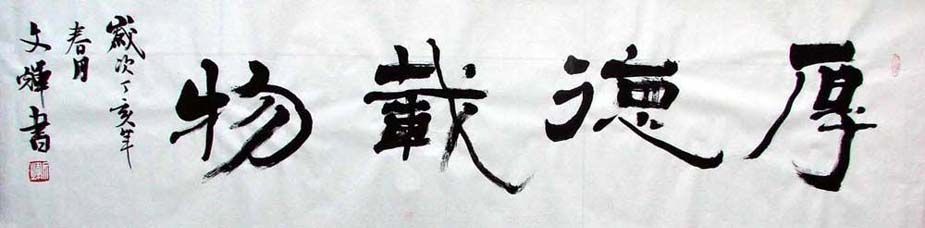 厚德載物
歲次丁亥年
春月
文輝書